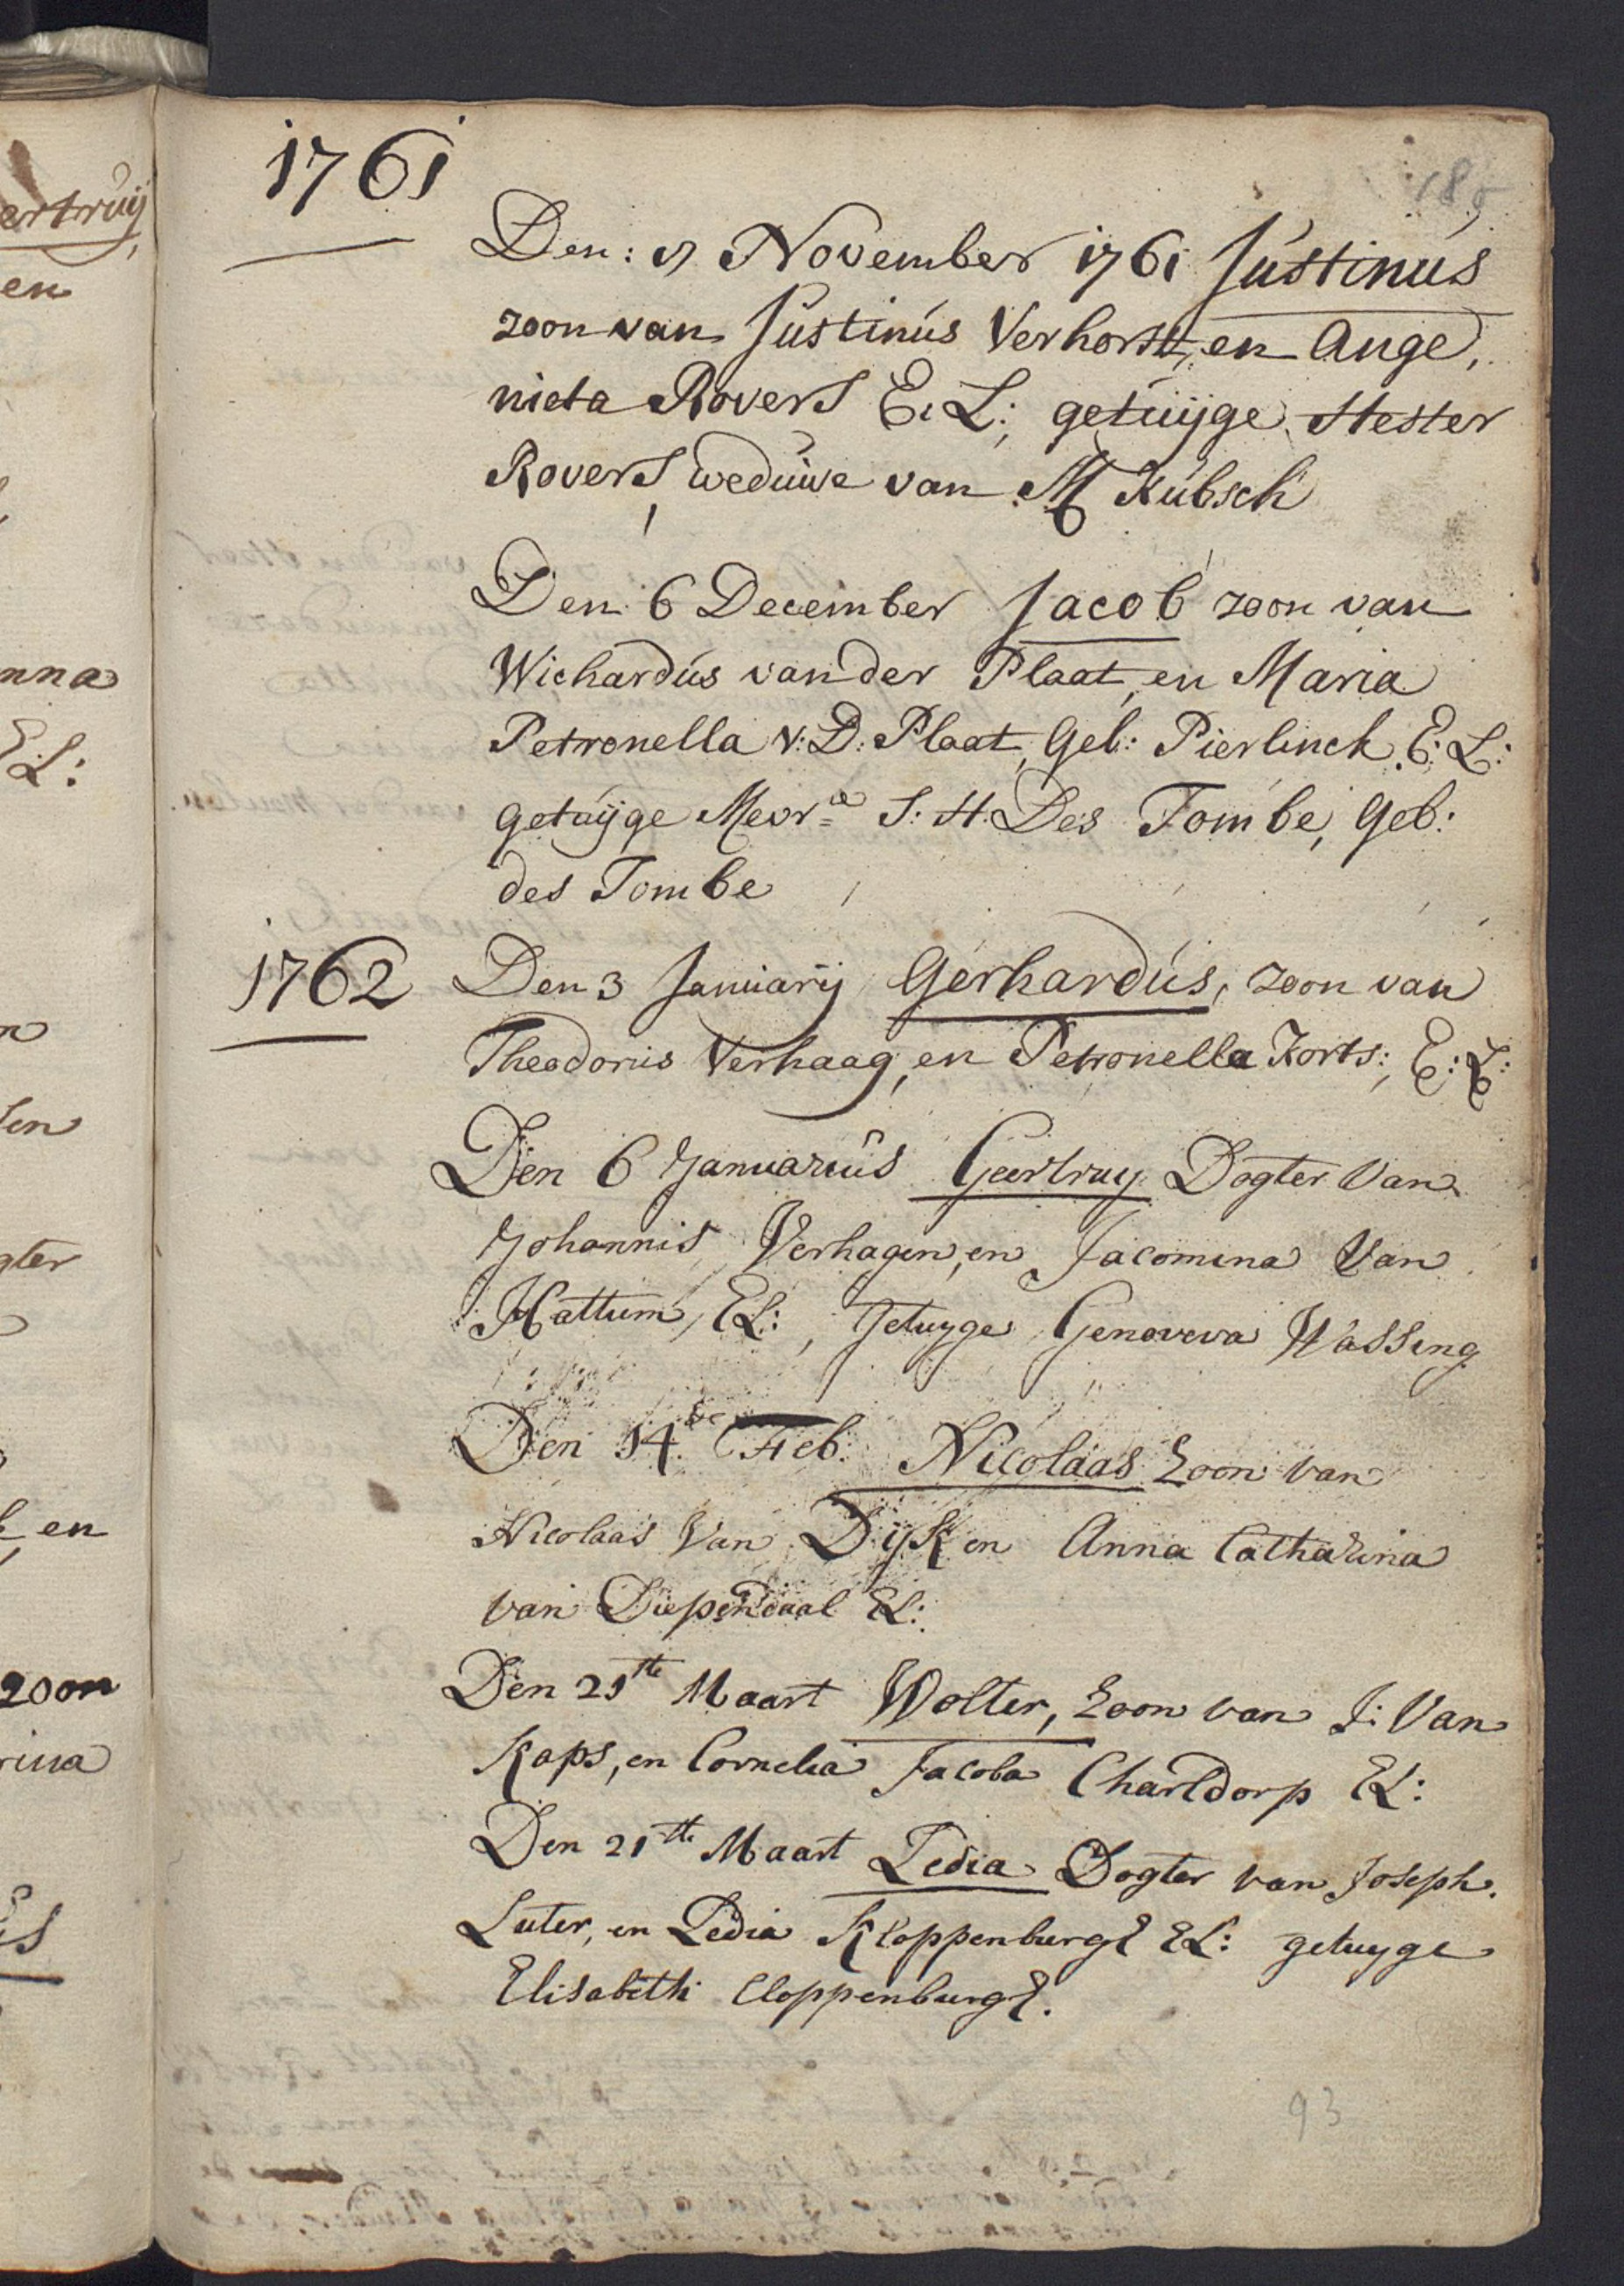 1761
185
Den: 17 November 1761 Justinus
zoon van Justinus Verhorst, en Ange,
nieta Rovers E: L:; getuijge Hester
Rovers, weduwe van M Kubsch
Den 6 December Jacob zoon van
Wichardus van der Plaat, en Maria
Petronella v: D: Plaat, Geb: Pierlinck E: L:
getuijge Mevre J: H: Des Tombe, Geb:
des Tombe
1762
Den 3 Januarij Gerhardus, zoon van
Theodorus Verhaag, en Petronella Korts:, E: L:
Den 6 Januarius Geertruy Dogter Van
Johannis Verhagen, en Jacomina Van
Hattum, EL:, Getuyge Genoveva Wassing
Den 14de Feb: Nicolaas Zoon van
Nicolaas Van Dijk en Anna Catharina
van Diependaal EL:
Den 21ste Maart Wolter, Zoon van J: Van
Kaps, en Cornelia Jacoba Charldorp EL:
Den 21ste Maart Ledia Dogter van Joseph
Luter, en Ledia Kloppenburg EL: getuyge
Elisabeth Cloppenburg.
93